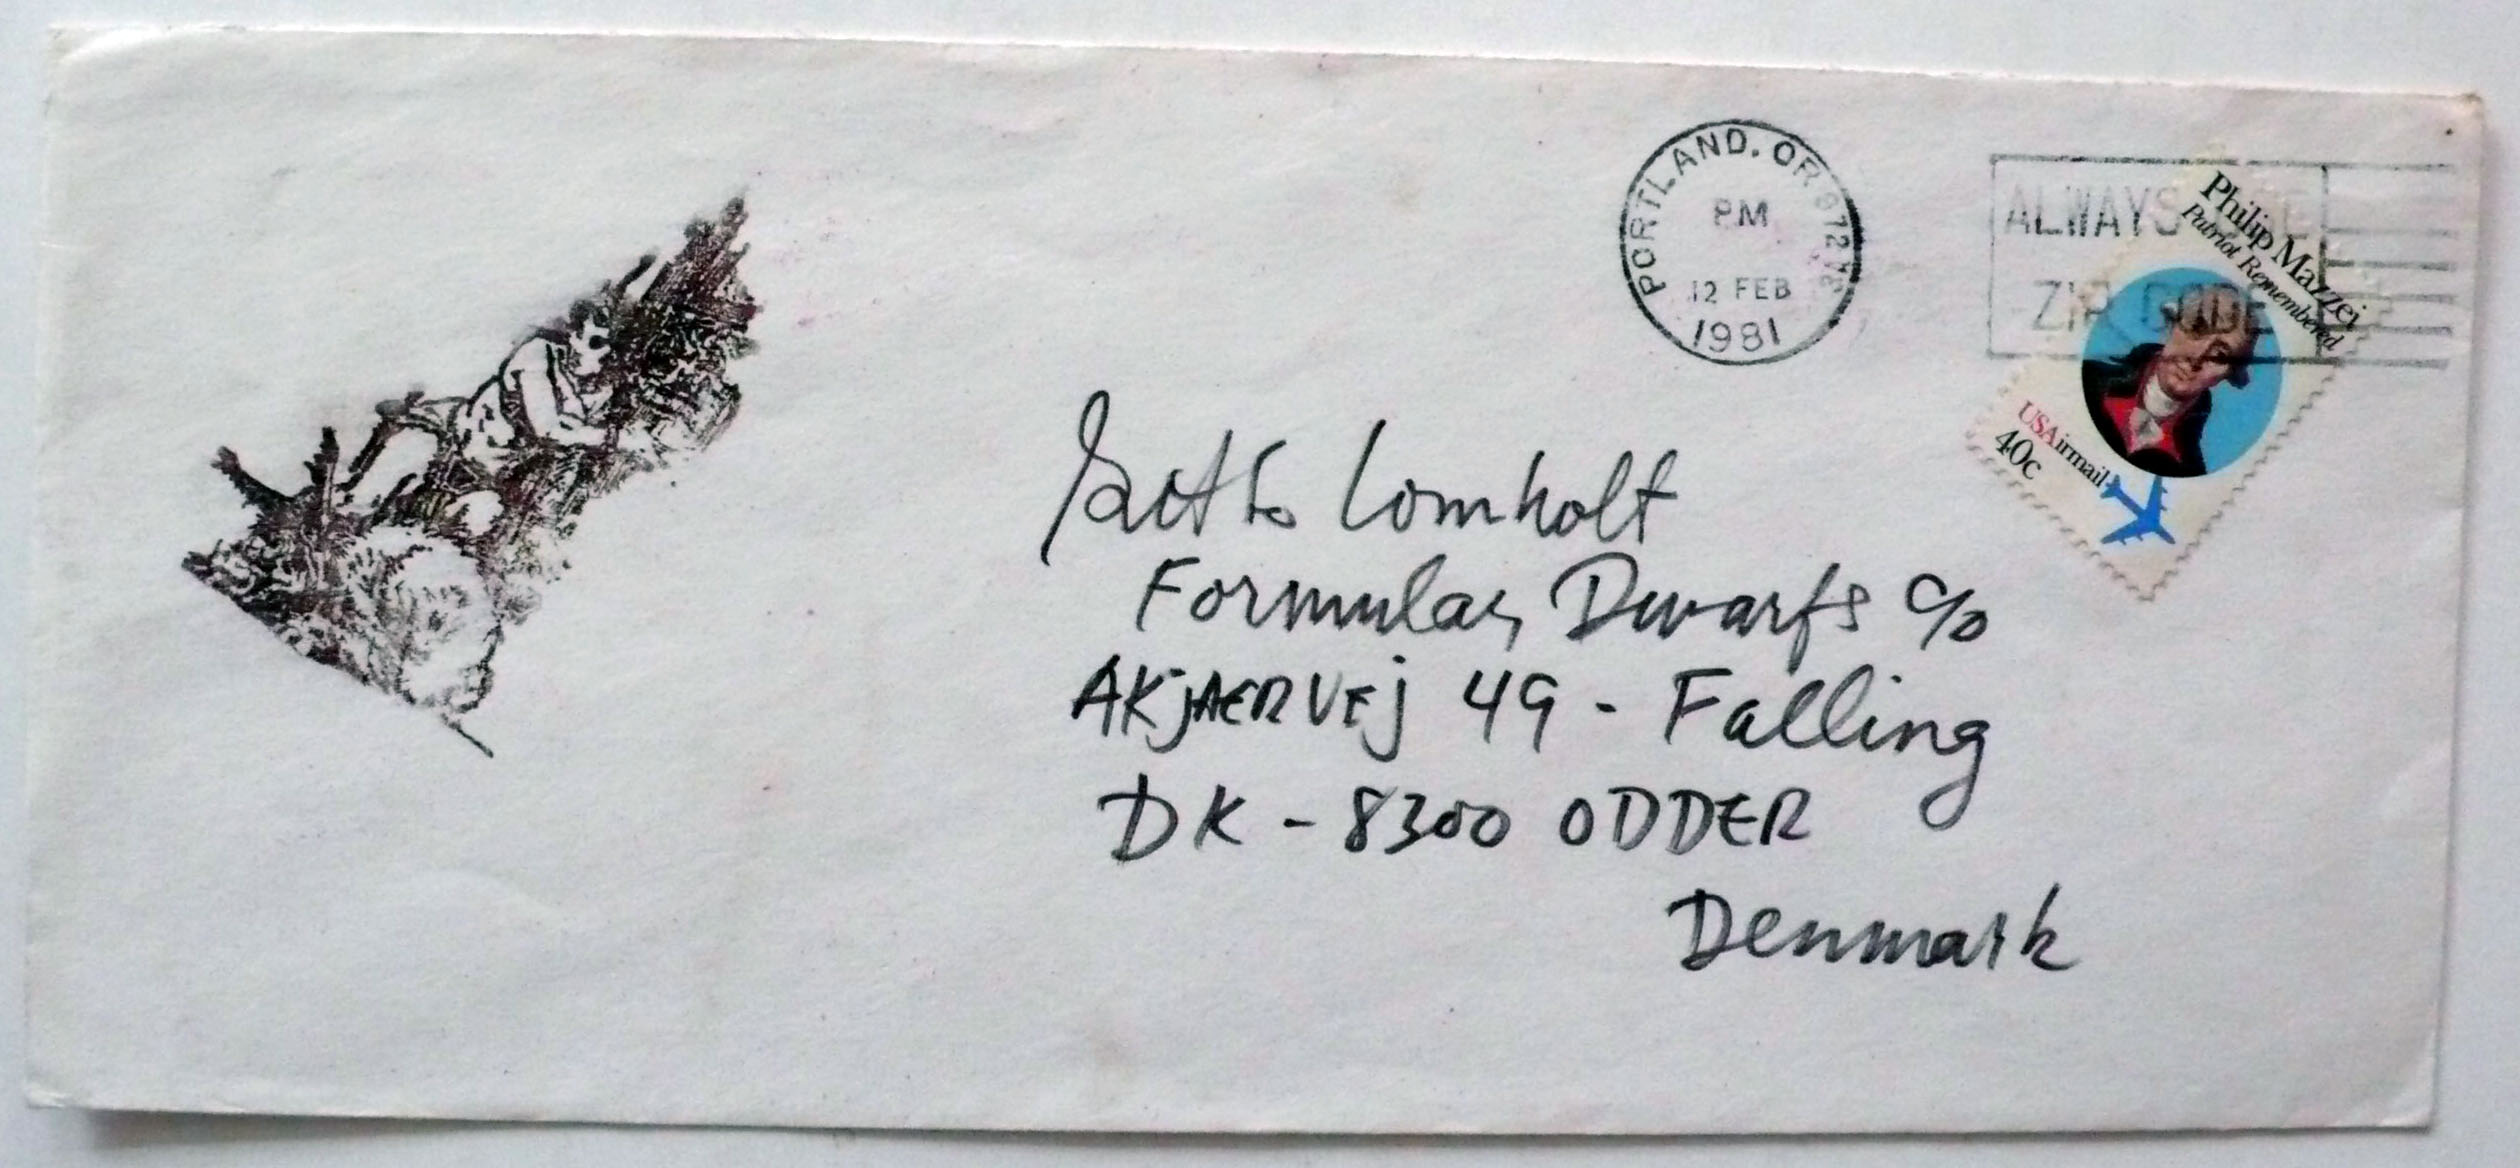 PORTLAND, OR 972
PM
12 FEB
1981
ALWAYS USE
ZIP CODE
Philip Mazzei
Patriot Remembered
USAirmail
40c
Lomholt
Formular Dwarfs c/o
AKJAERVEJ 49 - Falling
DK - 8300 ODDER
Denmark